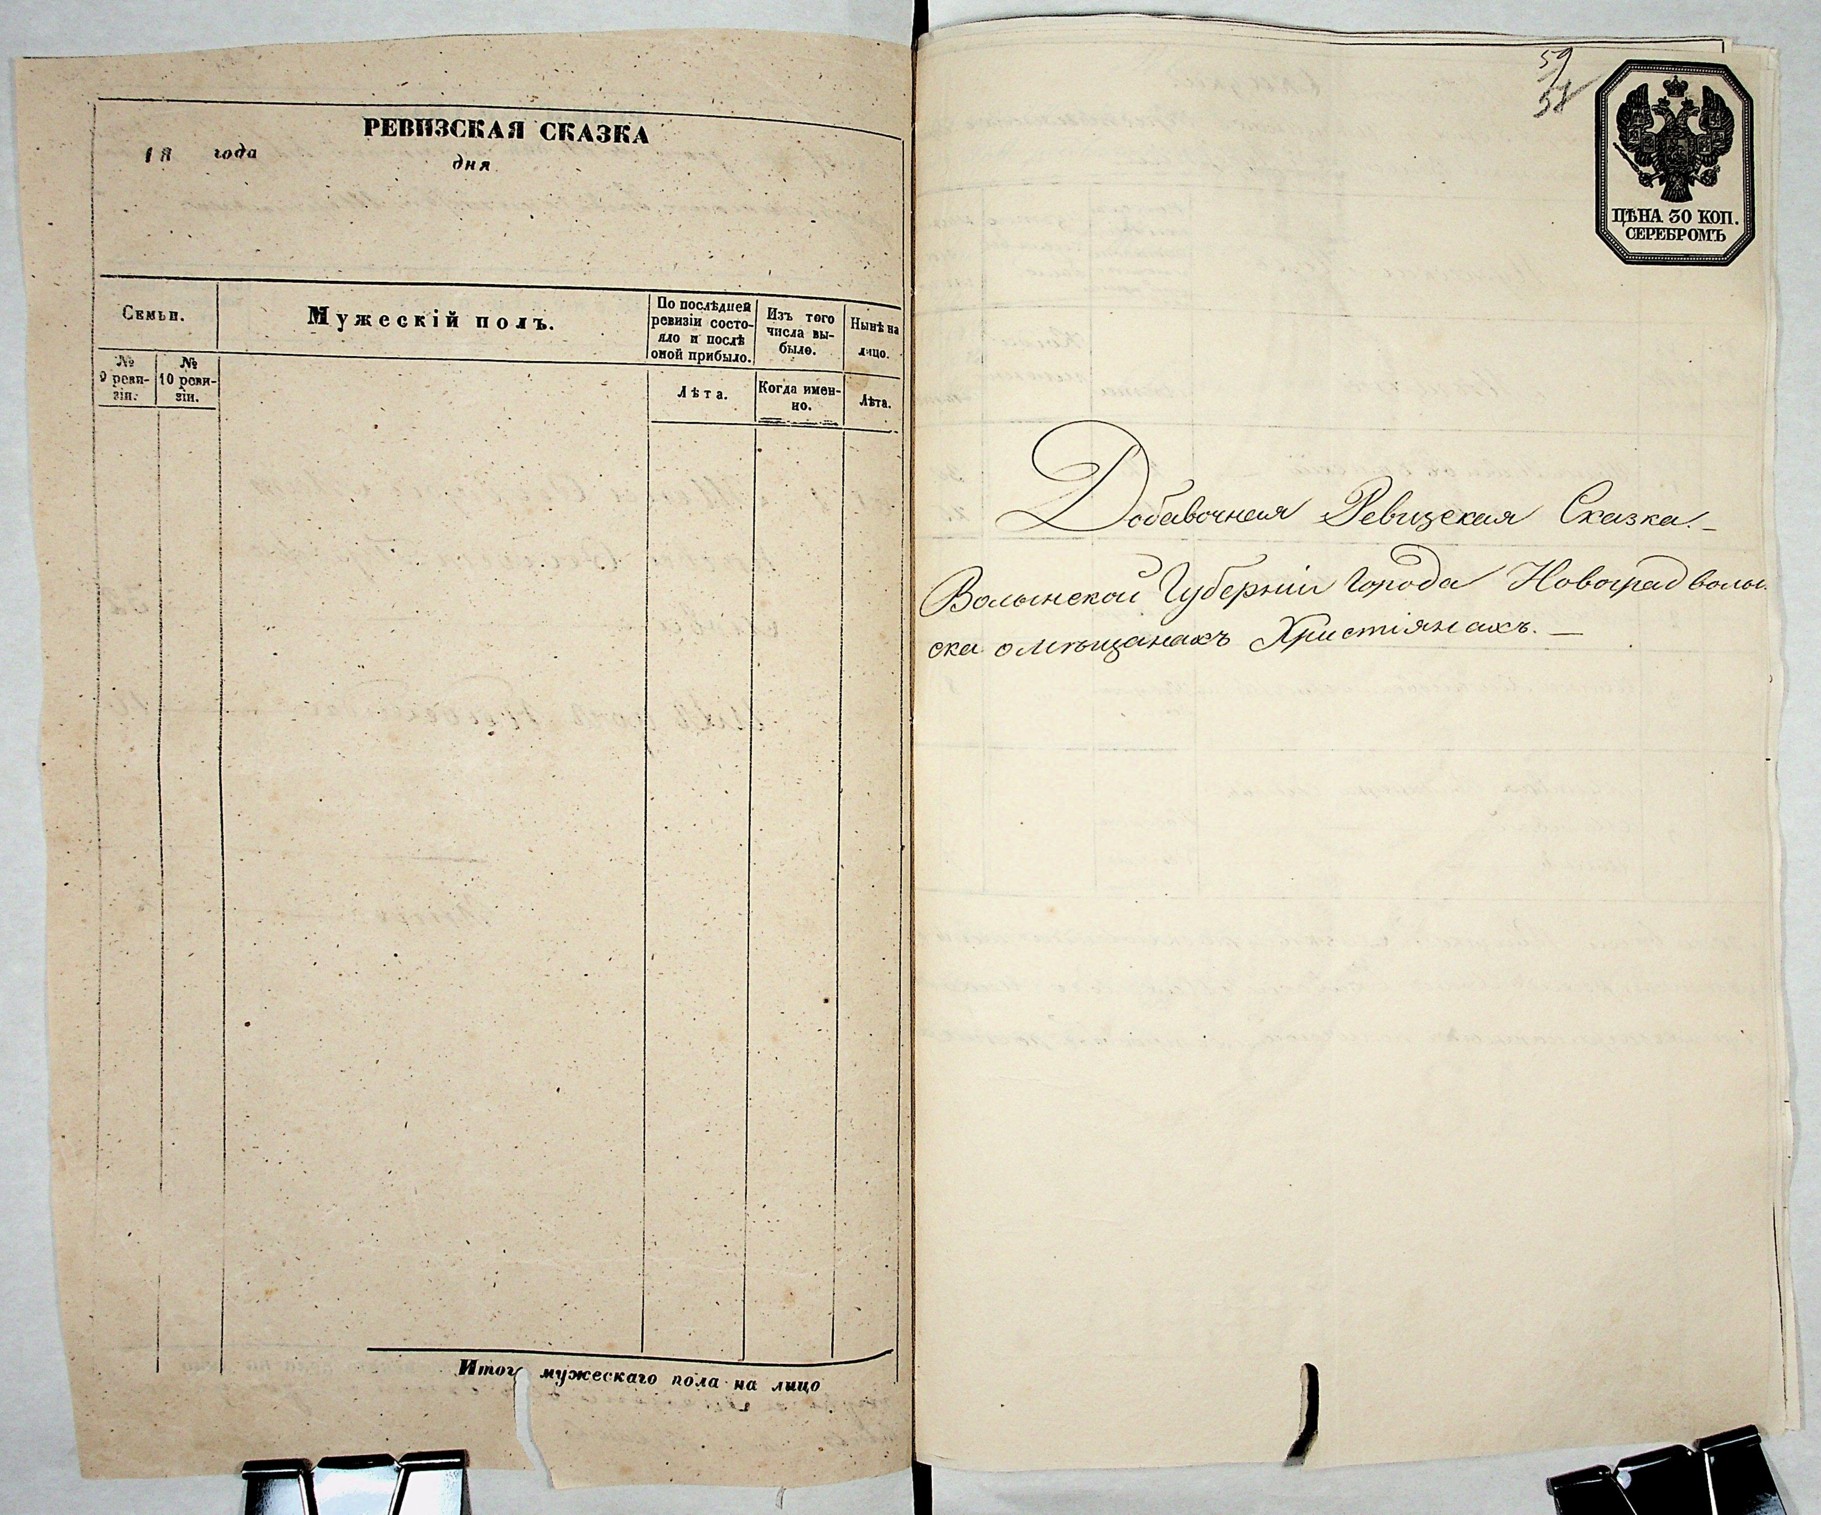 РЕВИЗСКАЯ СКАЗКА
18 года
дня
Семьи.
Мужескій полъ.
По послѣдней
ревизіи состо-
яло и послѣ
оной прибыло.
Изъ того
числа вы-
было.
Нынѣ на
лицо.
№
9 реви-
зіи.
№
10 реви-
зіи.
Лѣта.
Когда имен-
но.
Лѣта.
Итог мужескаго пола на лицо
59
58
ЦѢНА 30 КОП.
СЕРЕБРОМЪ
Добавочная Ревизская Сказка.
Волынской Губерніи Города Новоградволын
ска о мѣщанахъ Христіянахъ.